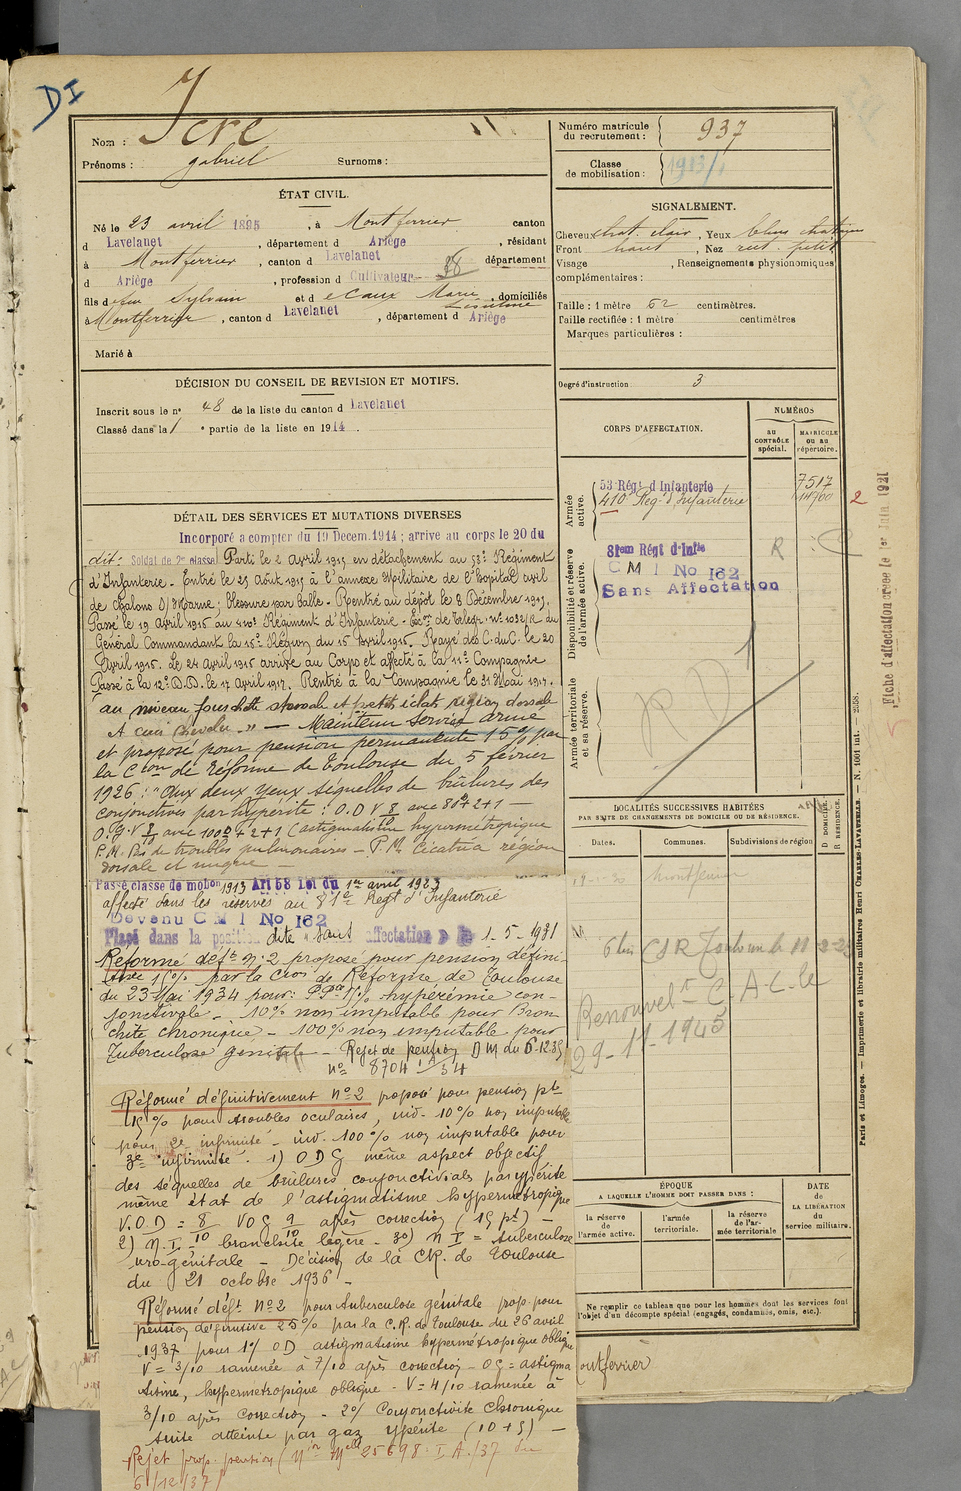 DI
Nom : Icre
Prénoms : gabriel Surnoms :
ÉTAT CIVIL.
Né le 23 avril 1895, à Montferrier canton
d Lavelanet, département d Ariège, résidant
à Montferrier, canton d Lavelanet département
d Ariège, profession d Cultivateur
fils d feu Sylvain et d ecaux Marie, domiciliés
à Montferrier, canton d Lavelanet, département d Ariège
Marié à
DÉCISION DU CONSEIL DE REVISION ET MOTIFS.
Inscrit sous le no 48 de la liste du canton d Lavelanet
Classé dans la 1e partie de la liste en 1914.
DÉTAIL DES SERVICES ET MUTATIONS DIVERSES
Incorporé a compter du 19 Decem. 1914 ; arrive au corps le 20 du
dit : Soldat de 2e classe Parti le 2 Avril 1915 en détachement au 53e Régiment
d'Infanterie - Entré le 25 Août 1915 à l'annexe Militaire de l'hopital civil
de Chalons s/ Marne ; blessure par balle - Rentré au dépôt le 8 Décembre 1915.
Passé le 19 Avril 1915 au 410e Régiment d'Infanterie - de Telegr. no 1032/R du
Général Commandant la 15e Région du 15 Avril 1915. Rayé des C. du C. le 20
Avril 1915. Le 24 Avril 1915 arrivé au Corps et affecté à la 11e Compagnie
Passé à la 12e D.D. le 17 Avril 1917. Rentré à la Compagnie le 31 Mai 1917.
au niveau fourchette sternale et petits éclats région dorsale
et cuir chevelu " — Maintenu service armé
et proposé pour pension permanente 15 % par
la Cion de Réforme de Toulouse du 5 février
1926 : "Aux deux yeux séquelles de brûlures des
conjonctives par hypérite : O.D V 8/10 avec 80° + 2 + 1 —
O.G. V 8/10 avec 100° + 2 + 1 (astigmatisme hypermétropique
P.M. Pas de troubles pulmonaires - P.M. Cicatrice région
dorsale et nuque —
Passé classe de mobon 1913 Art 58 Loi du 1er avril 1923
affecté dans les réserves au 81e Régt d'Infanterie
Devenu C M I No 162
Placé dans la position dite "sans affectation" 1-5-1931
Réformé déft no 2 proposé pour pension défini-
tive par la Cion de Réforme de Toulouse
du 23 Mai 1934 pour : hypérémie con-
jonctivale - 10% non imputable pour Bron-
chite chronique - 100% non imputable pour
Tuberculose génitale - Rejet de pension DM du 6-12-35
no 8704 54
Réformé définitivement no 2 proposé pour pension pte
15 % pour troubles oculaires, ind. 10% non imputable
pour 2e infirmité - ind. 100 % non imputable pour
3e infirmité. 1) ODG même aspect objectif
des séquelles de brûlures conjonctivales par ypérite
même état de l'astigmatisme hypermétropique
V. OD = 8/10 VOG 9/10 après correction (15 pt) —
2) N.I. = bronchite légère - 3e) N I = tuberculose
uro-génitale - Décision de la CR. de Toulouse
du 21 octobre 1936 -
Réformé déft No 2 pour tuberculose génitale prop. pour
pension définitive 25% par la C.R. de Toulouse du 26 avril
1937 pour 1°/ OD astigmatisme hypermétropique oblique
V = 3/10 ramenée à 7/10 après correction - OG = astigma
tisme, hypermétropique oblique - V = 4/10 ramenée à
3/10 après correction - 2°/ Conjonctivite chronique
suite atteinte par gaz ypérite (10 + 5) —
Rejet prop. pension (25698. I.A./37 du
6/12/37)
Numéro matricule du recrutement : 937
Classe de mobilisation : 1913/1
SIGNALEMENT.
Cheveux chat. clair, Yeux bleus chatains
Front haut, Nez rect. petit
Visage , Renseignements physionomiques
complémentaires :
Taille : 1 mètre 62 centimètres.
Taille rectifiée : 1 mètre centimètres
Marques particulières :
Degré d'instruction : 3
CORPS D'AFFECTATION.
NUMÉROS
au CONTRÔLE spécial.
MATRICULE ou au répertoire.
Armée active.
53 Régt d'Infanterie 7517
410 Régt d'Infanterie 14700
2
Disponibilité et réserve de l'armée active.
81em Régt d'Infie R
C M I No 162
Sans Affectation
Armée territoriale et sa réserve.
RD
Fiche d'affectation créée le 1er Juin 1921
LOCALITÉS SUCCESSIVES HABITÉES
PAR SUITE DE CHANGEMENTS DE DOMICILE OU DE RÉSIDENCE.
Dates. Communes. Subdivisions de région
D DOMICILE.
R RÉSIDENCE.
Montferrier
Renouvelt C.A.C. le
29-11-1945
ÉPOQUE
A LAQUELLE L'HOMME DOIT PASSER DANS :
la réserve de l'armée active.
l'armée territoriale.
la réserve de l'armée territoriale
DATE de LA LIBÉRATION du service militaire.
Ne remplir ce tableau que pour les hommes dont les services font
l'objet d'un décompte spécial (engagés, condamnés, omis, etc.).
ontferrier
Paris et Limoges. — Imprimerie et librairie militaires Henri CHARLES-LAVAUZELLE. — N. 1001 int. — 2558.